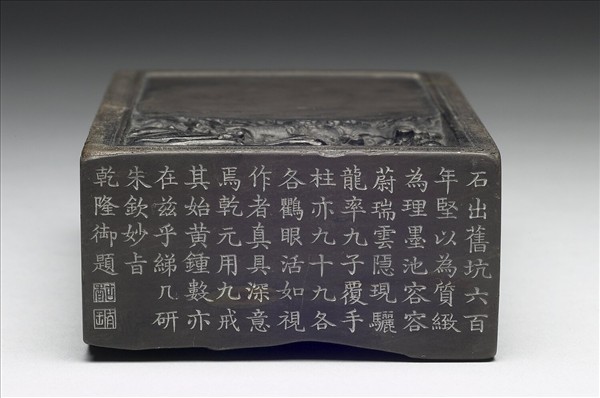 石出舊坑六百
年堅以為質緻
為理墨池容容
蔚瑞雲隱現驪
龍率九子覆手
柱亦九十九各
各鸜眼活如視
作者真具深意
焉乾元用九戒
其始黃鍾數亦
在茲乎綈几研
朱欽妙旨
乾隆御題